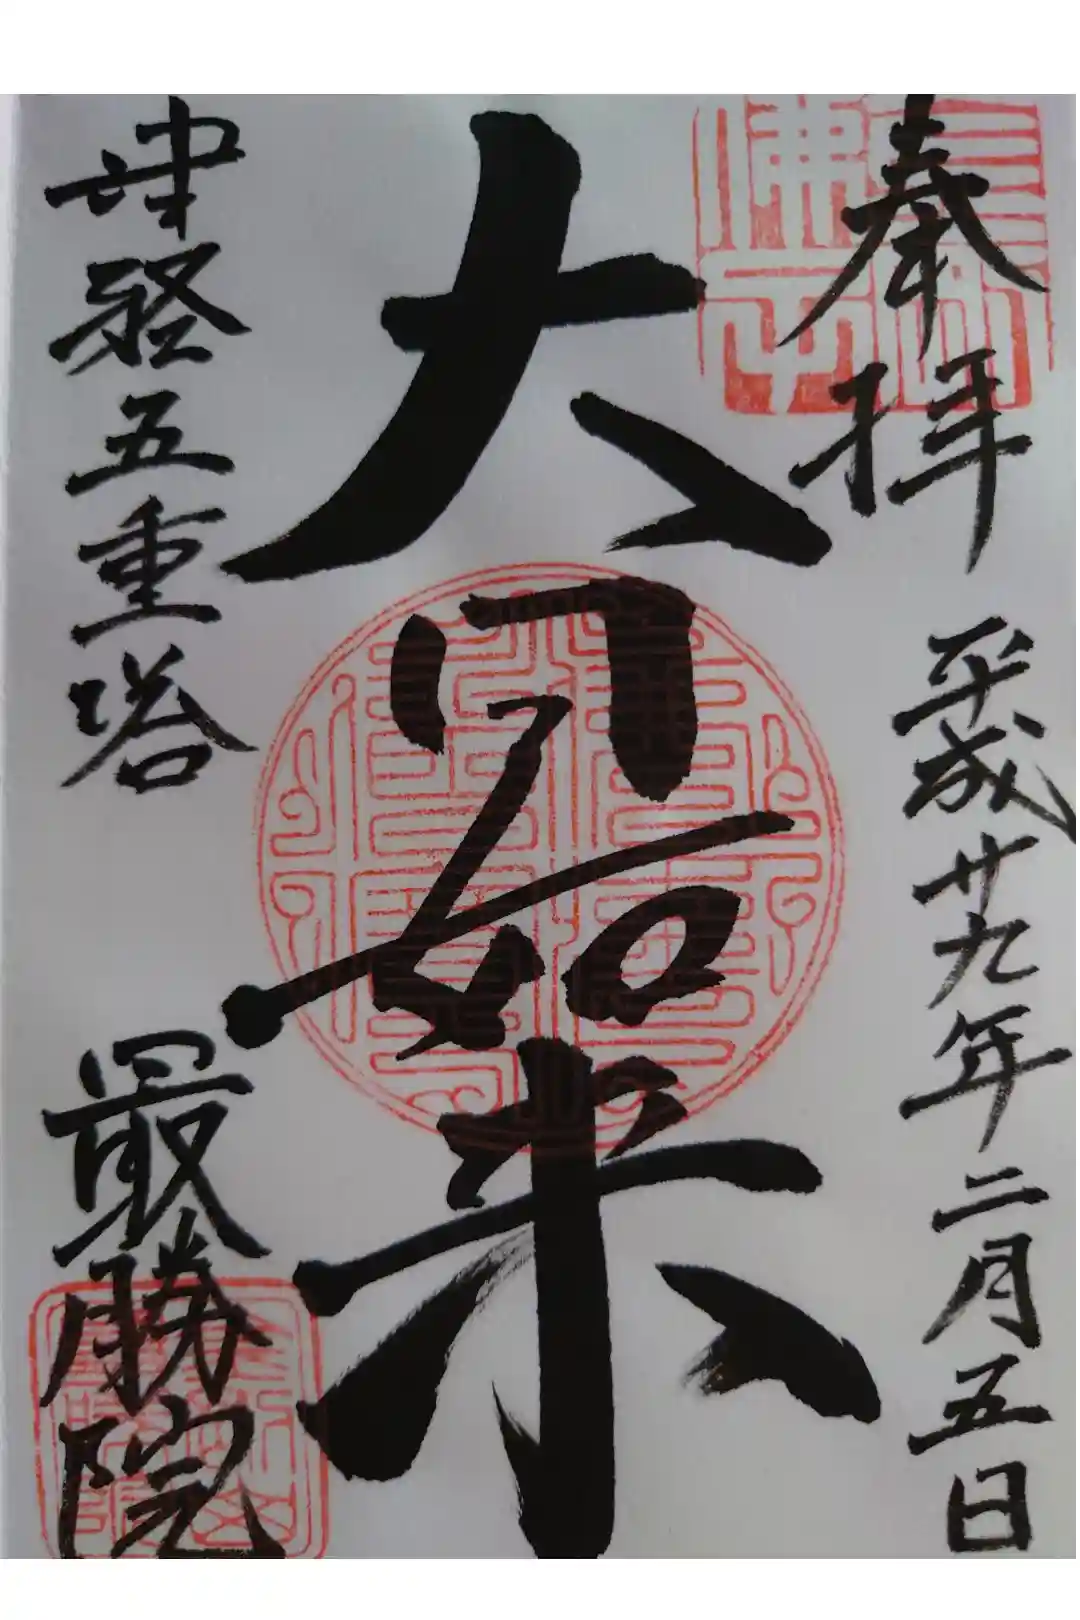 奉拝 平成廿九年二月五日
大日如来
津軽五重塔
最勝院